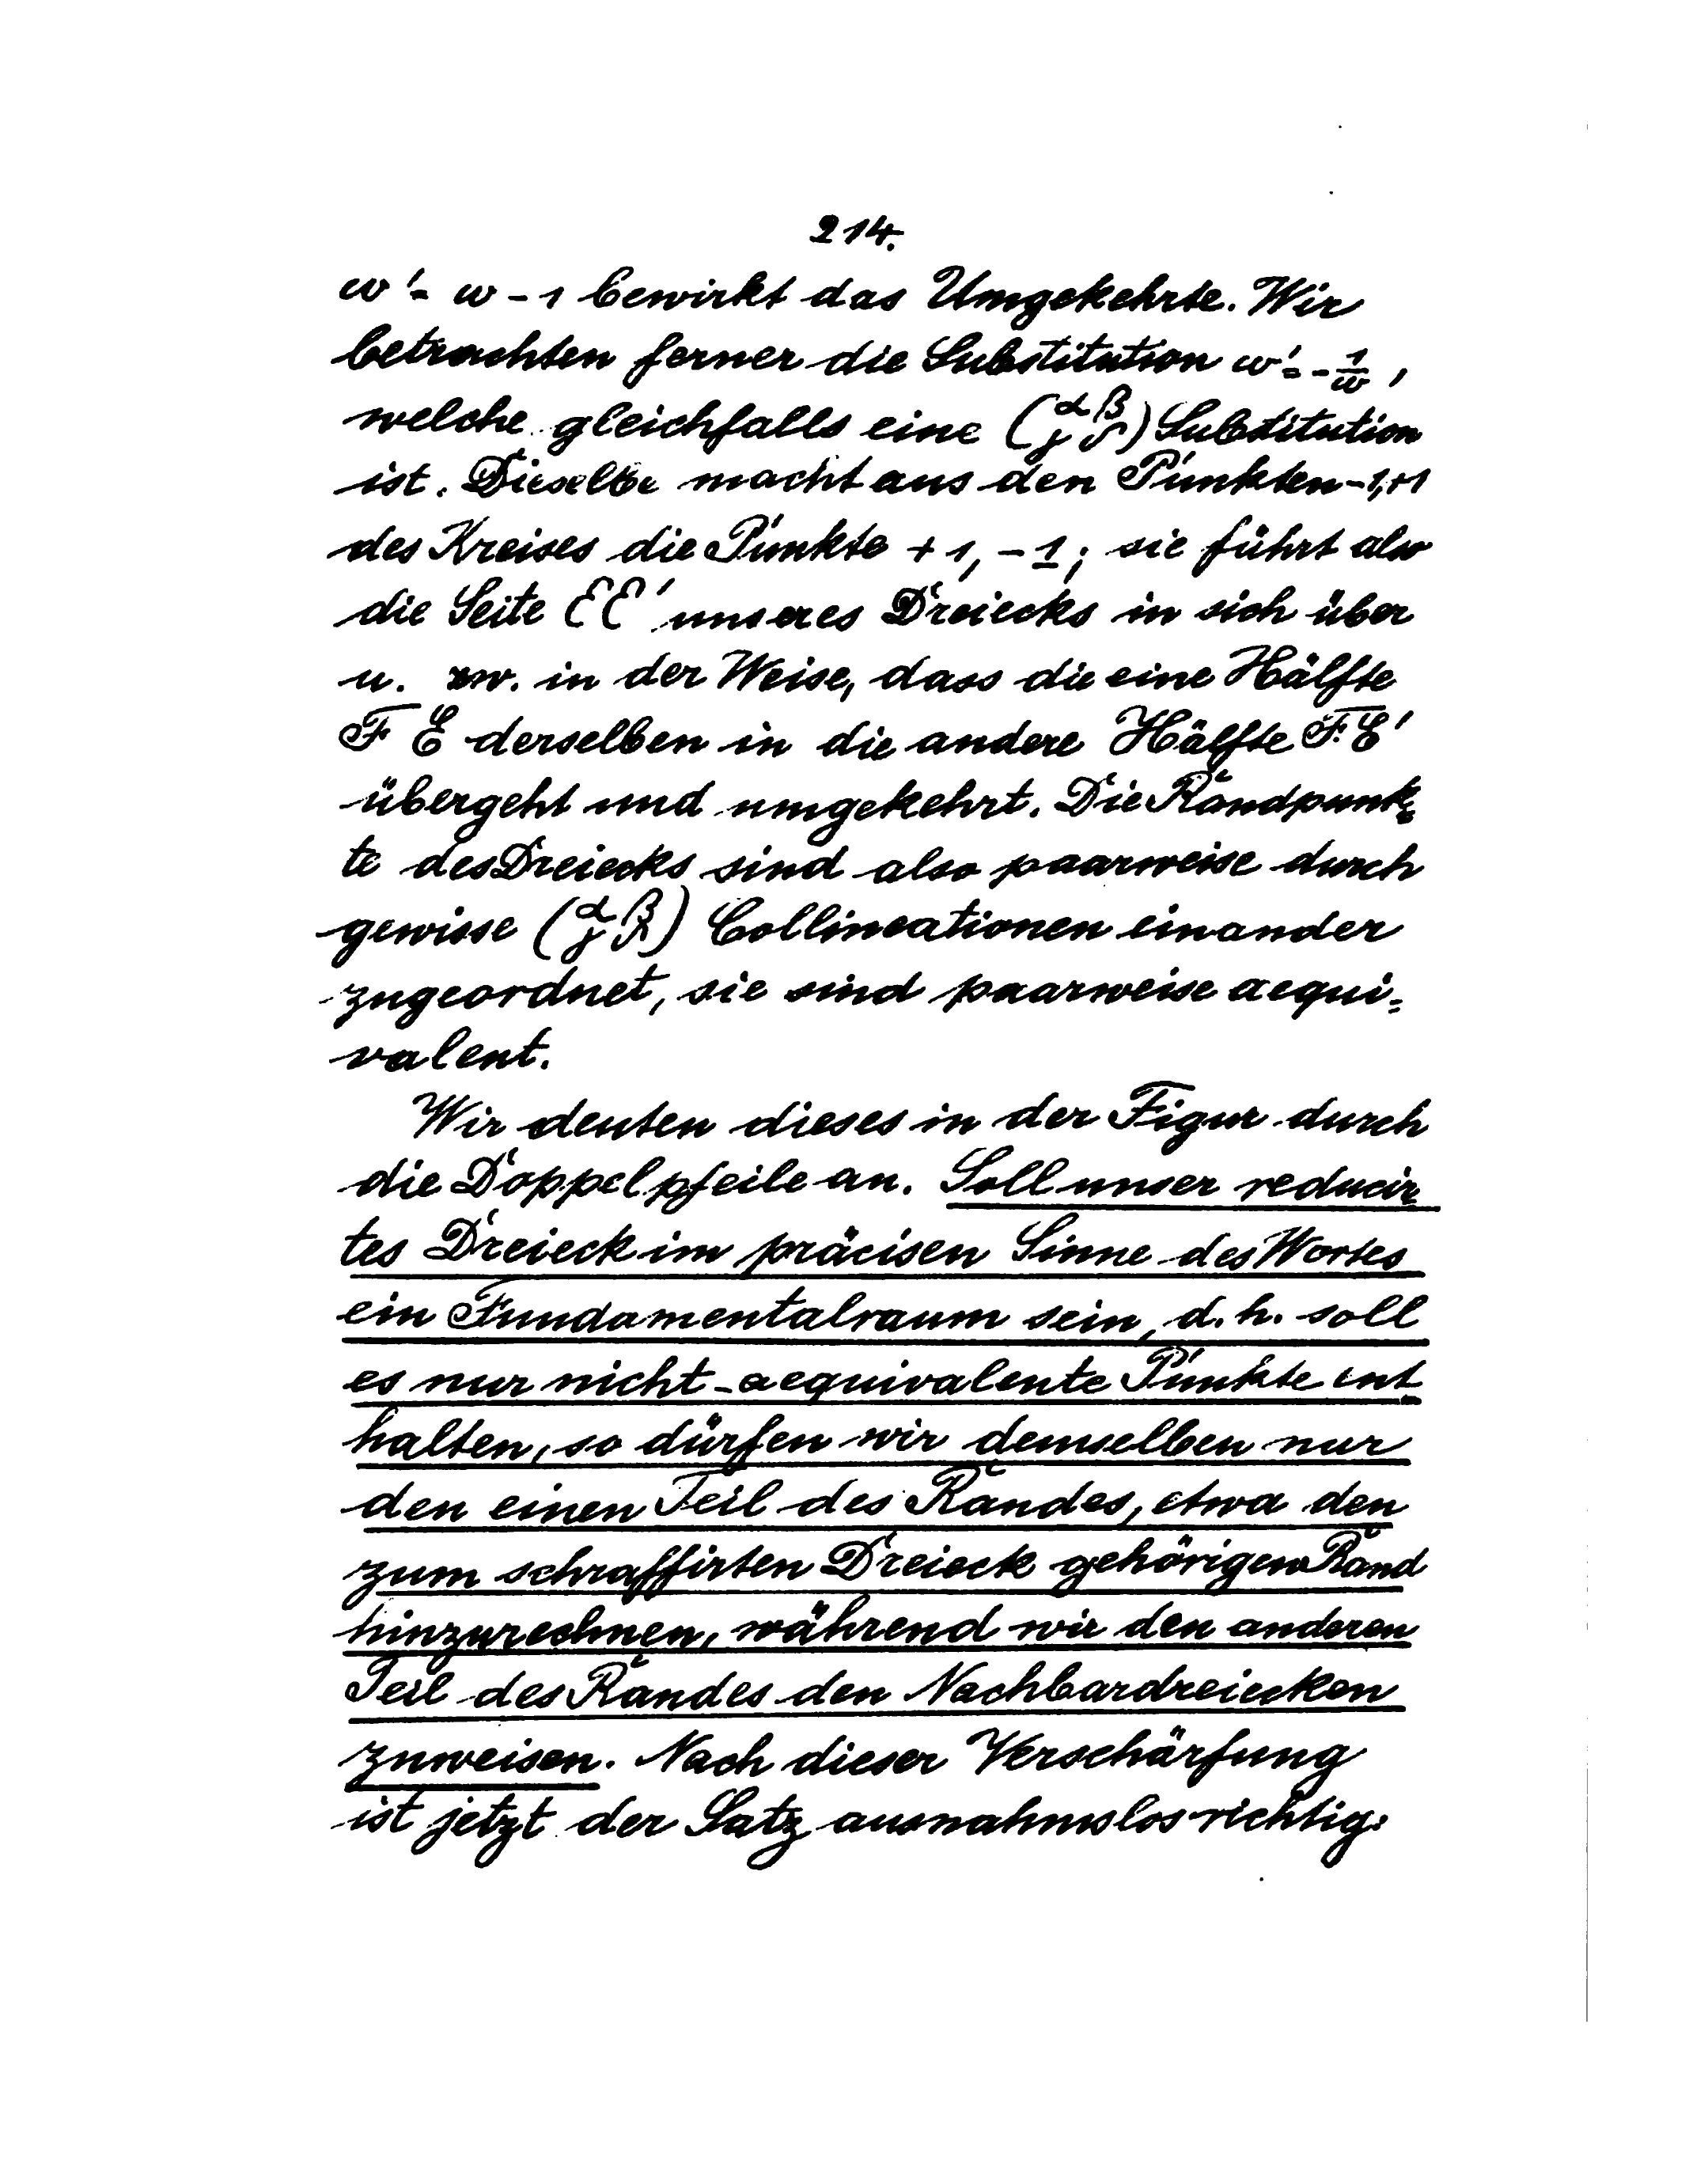 214.
ω' = ω - 1 bewirkt das Umgekehrte. Wir
betrachten ferner die Substitution ω' = -1/ω,
welche gleichfalls eine (α β γ δ) Substitution
ist. Dieselbe macht aus den Punkten -1, +1
des Kreises die Punkte +1, -1; sie führt also
die Seite EE' unseres Dreiecks in sich über
u. zw. in der Weise, dass die eine Hälfte
F E derselben in die andere Hälfte F E'
übergeht und umgekehrt. Die Randpunk=
te des Dreiecks sind also paarweise durch
gewisse (α β γ δ) Collineationen einander
zugeordnet, sie sind paarweise aequi=
valent.
Wir deuten dieses in der Figur durch
die Doppelpfeile an. Soll unser reducir
tes Dreieck im präcisen Sinne des Wortes
ein Fundamentalraum sein, d. h. soll
es nur nicht-aequivalente Punkte ent
halten, so dürfen wir demselben nur
den einen Teil des Randes, etwa den
zum schraffirten Dreieck gehörigen Rand
hinzurechnen, während wir den anderen
Teil des Randes den Nachbardreiecken
zuweisen. Nach dieser Verschärfung
ist jetzt der Satz ausnahmslos richtig: